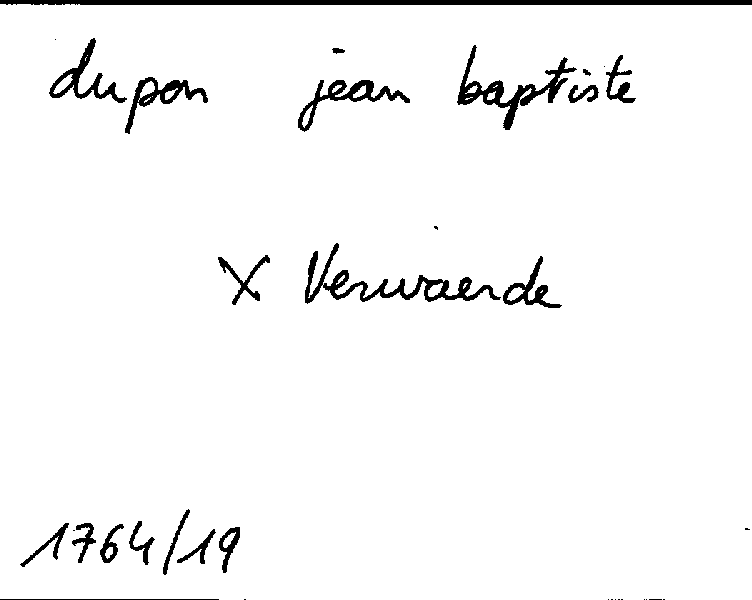 dupon jean baptiste
X Verwaerde
1764/19